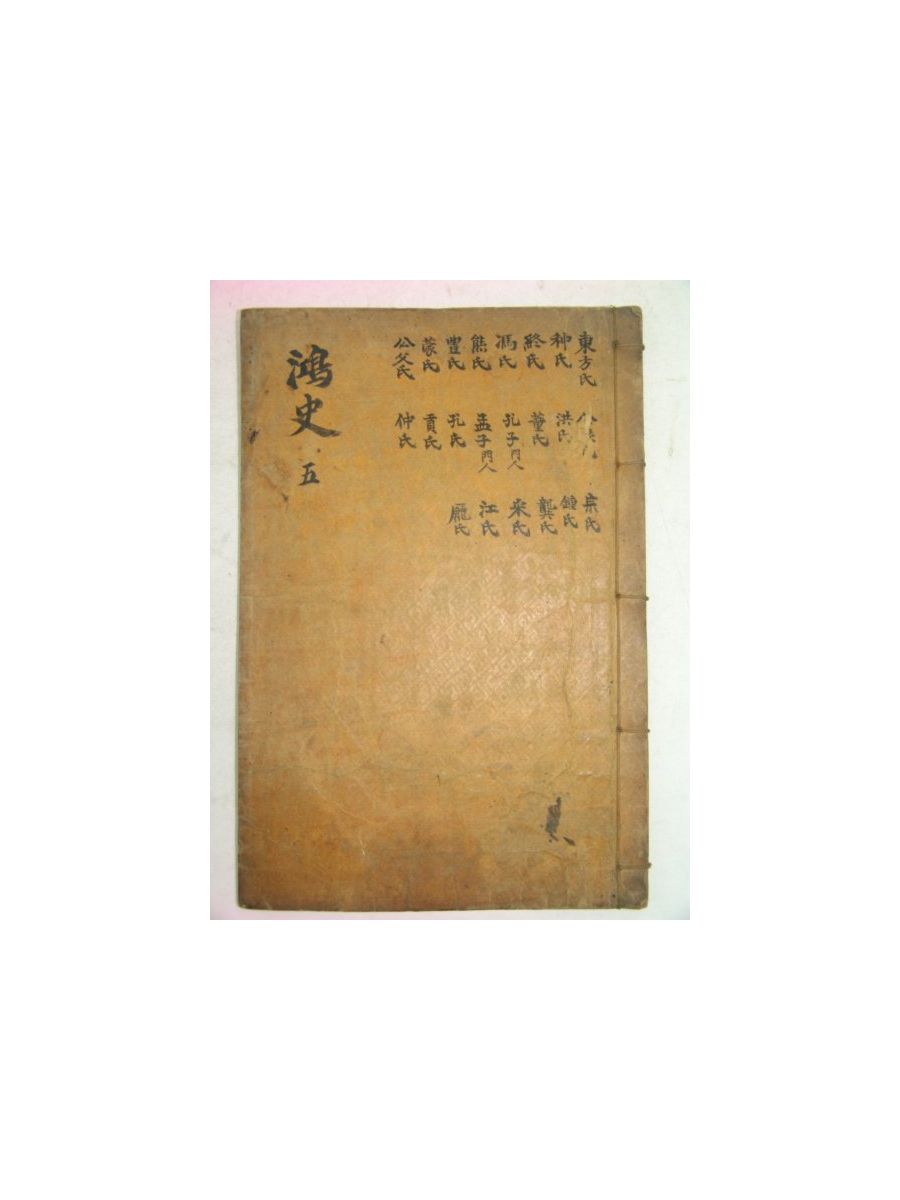 鴻史
五
東方氏
种氏
終氏
馮氏
熊氏
豊氏
蒙氏
公父氏
洪氏
董氏
孔子門人
孟子門人
孔氏
貢氏
仲氏
宗氏
鍾氏
龔氏
氏
江氏
龐氏